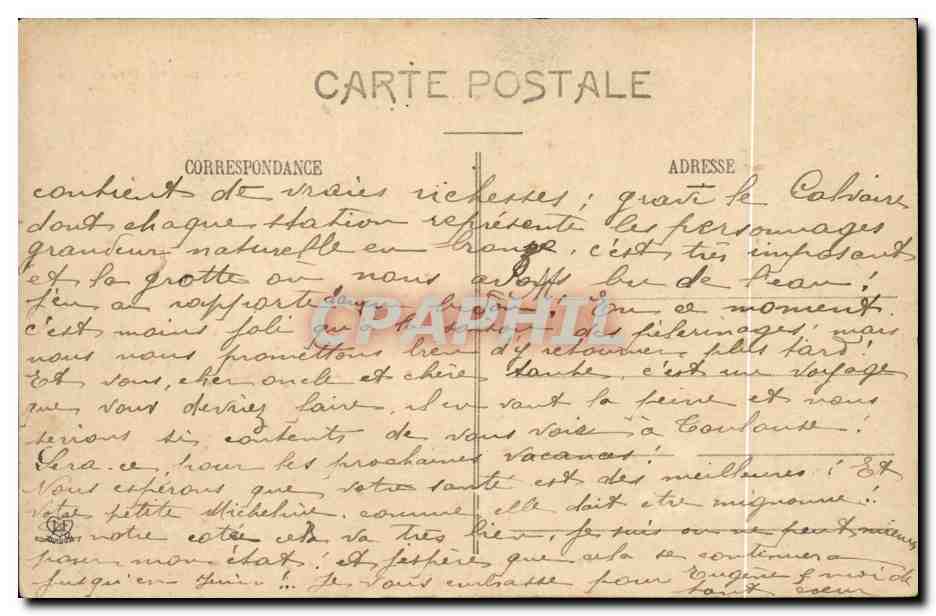 CARTE POSTALE
CORRESPONDANCE
ADRESSE
contient de vraies richesses ; gravi le Calvaire
dont chaque station représente les personnages
grandeur naturelle en bronze. c'est très imposant
et la grotte ou nous avons bu de l'eau !
j'en ai rapporté dans un bidon ! En ce moment
c'est moins joli qu'à la saison des pèlerinages, mais
nous nous promettons bien d'y retourner plus tard !
Et vous, cher oncle et chère tante, c'est un voyage
que vous devriez faire, il en vaut la peine et nous
serions si contents de vous voir à Toulouse !
Sera-ce, pour les prochaines vacances !
Nous espérons que votre santé est des meilleures ! Et
votre petite Micheline, comme elle doit être mignonne !
notre côté cela va très bien, je suis on ne peut mieux
pour mon état ! et j'espère que cela se continuera
jusqu'en Juin !.. Je vous embrasse pour Eugène & moi de
tout coeur
CPAPHIL